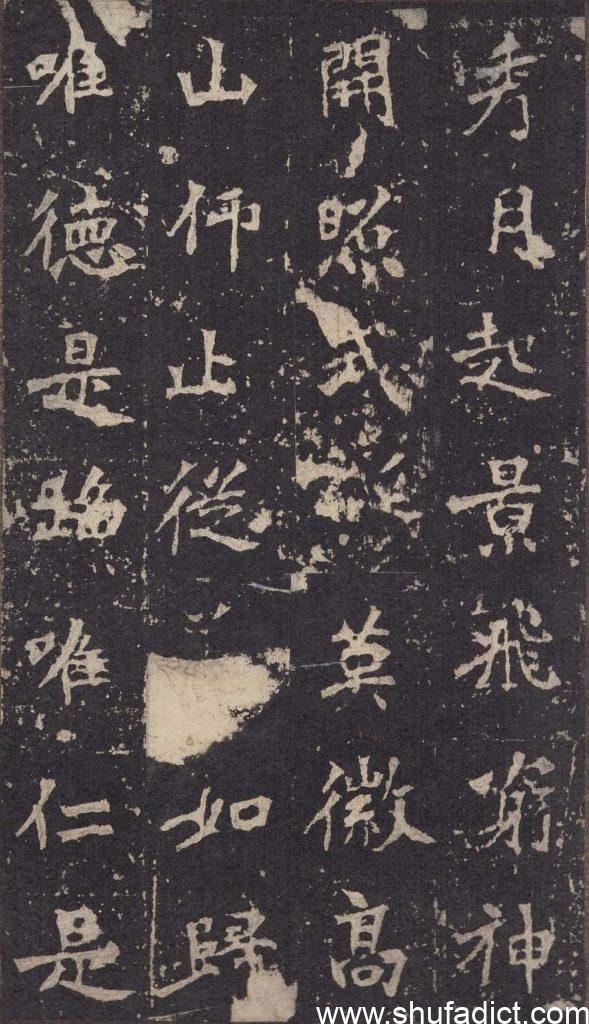 秀月起景飛窮神
開照式英徽高
山仰止從如歸
唯德是蹈唯仁是
www.shufadict.com